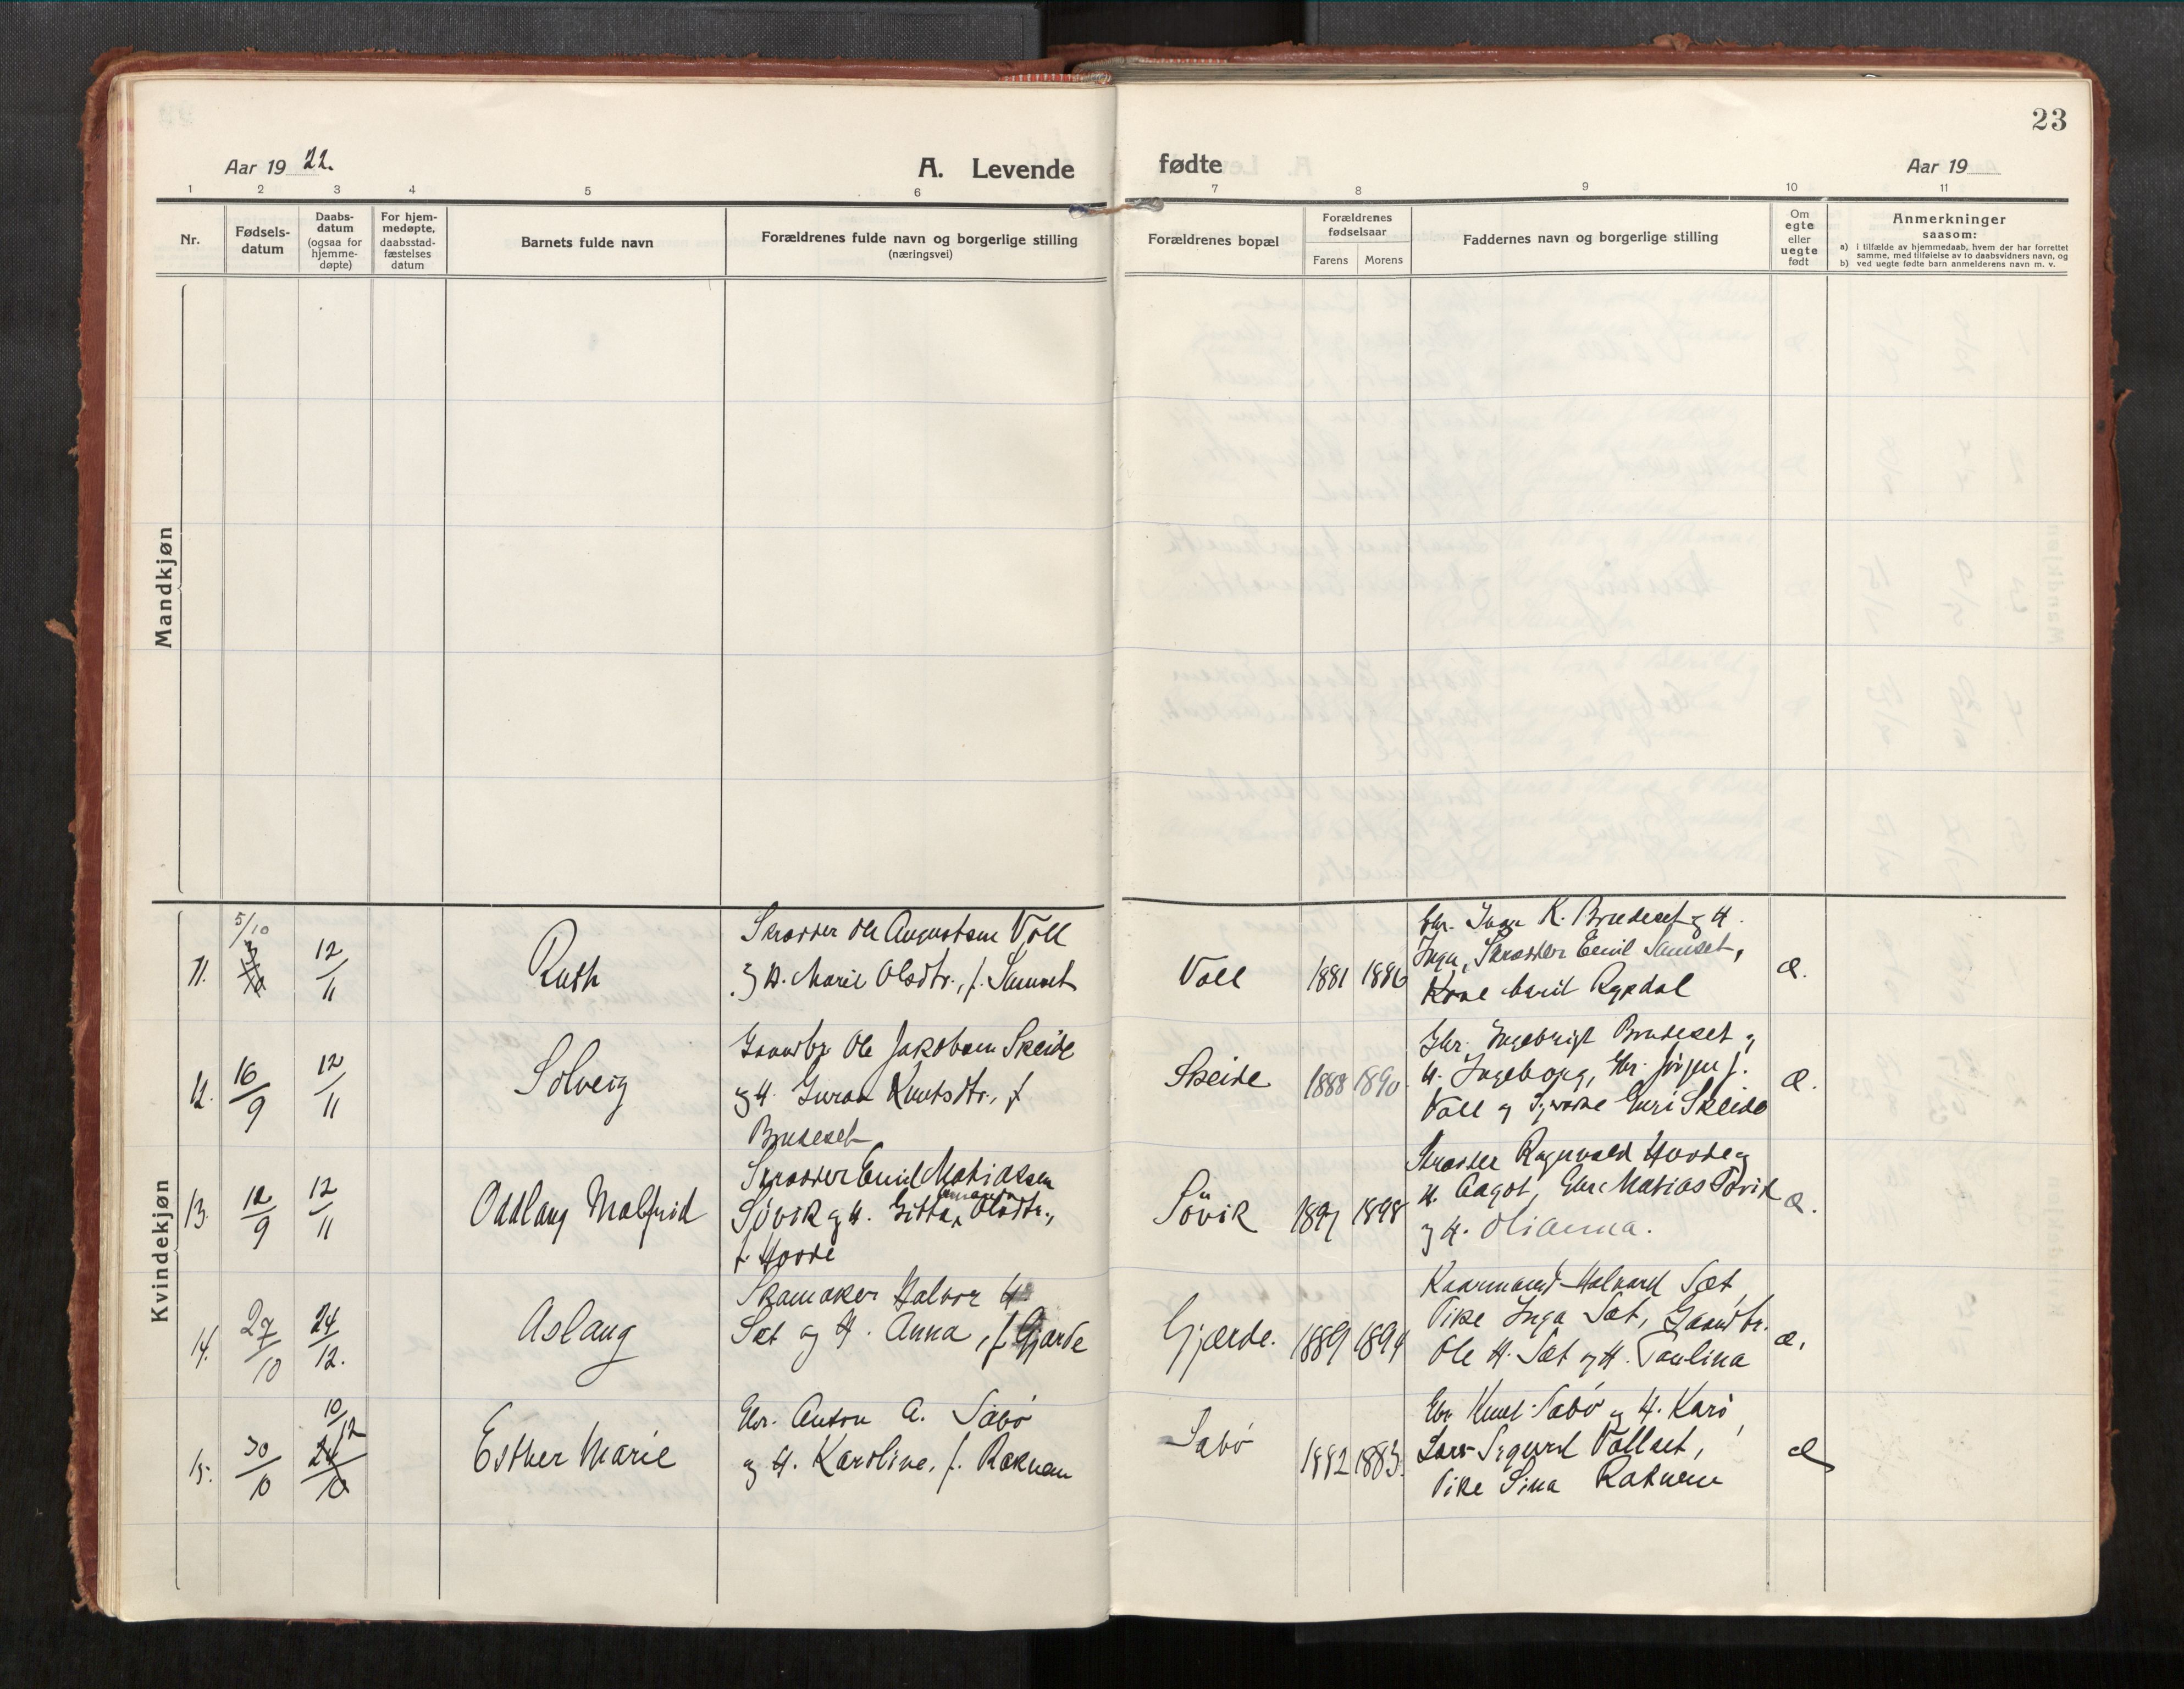 23
Aar 19 22.
A. Levende
fødte
Aar 19
1 2 3 4 5 6 7 8 9 10 11
Nr.
Fødsels-
datum
Daabs-
datum
(ogsaa for
hjemme-
døpte)
For hjem-
medøpte,
daabsstad-
fæstelses
datum
Barnets fulde navn
Forældrenes fulde navn og borgerlige stilling
(næringsvei)
Forældrenes bopæl
Forældrenes
fødselsaar
Farens Morens
Faddernes navn og borgerlige stilling
Om
egte
eller
uegte
født
Anmerkninger
saasom:
a) i tilfælde av hjemmedaab, hvem der har forrettet
samme, med tilføielse av to daabsvidners navn, og
b) ved uegte fødte barn anmelderens navn m. v.
Mandkjøn
Kvindekjøn
11.
5/10
12/11
Ruth
Skrædder Ole Augustsen Voll
og H. Marie Olsdtr., f. Samset
Voll
1881 1886
Gbr. Ivar K. Brudeset og H.
Inga, Skrædder Emil Samset,
Kone Marit Rypdal
æ.
12.
16/9
12/11
Solveig
Gaardbr. Ole Jakobsen Skeide
og H. Guroa Knutsdtr., f
Brudeset
Skeide
1888 1890
Gbr. Ingebrigt Brudeset og
H. Ingeborg, Gbr. Jørgen J.
Voll og Guri Skeide
æ.
13.
12/9
12/11
Oddlaug Malfrid
Skrædder Emil Matiassen
Søvik og H. Gitta Amanda Olsdtr.,
f. Hovde
Søvik
1897 1898
Skrædder Ragnvald Hovde og
H. Aagot, Gbr. Matias Søvik
og H. Olianna.
æ.
14.
27/10
24/12.
Aslaug
Skomaker Halvor H
Sæt og H. Anna, f. Gjærde
Gjærde.
1889 1894
Halvard Sæt,
Pike Inga Sæt, Gaardbr.
Ole H. Sæt og H. Paulina
æ.
15.
30/10
10/12
24/10
Esther Marie
Gbr. Anton A. Sæbø
og H. Karoline, f. Raknem
Sæbø
1882 1883.
Gbr. Knut Sæbø og H. Kari
Lars Sigurd Vollset,
Pike Sina Raknem
æ